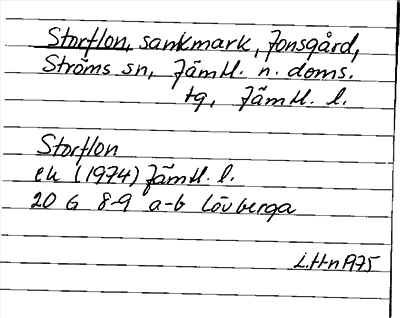 Storflon, sankmark, Jonsgård,
Ströms sn, Jämtl. n. doms.
tg, Jämtl. l.
Storflon
ek (1974) Jämtl. l.
20 G 8-9 a-b Lövberga
L.H-n 1975